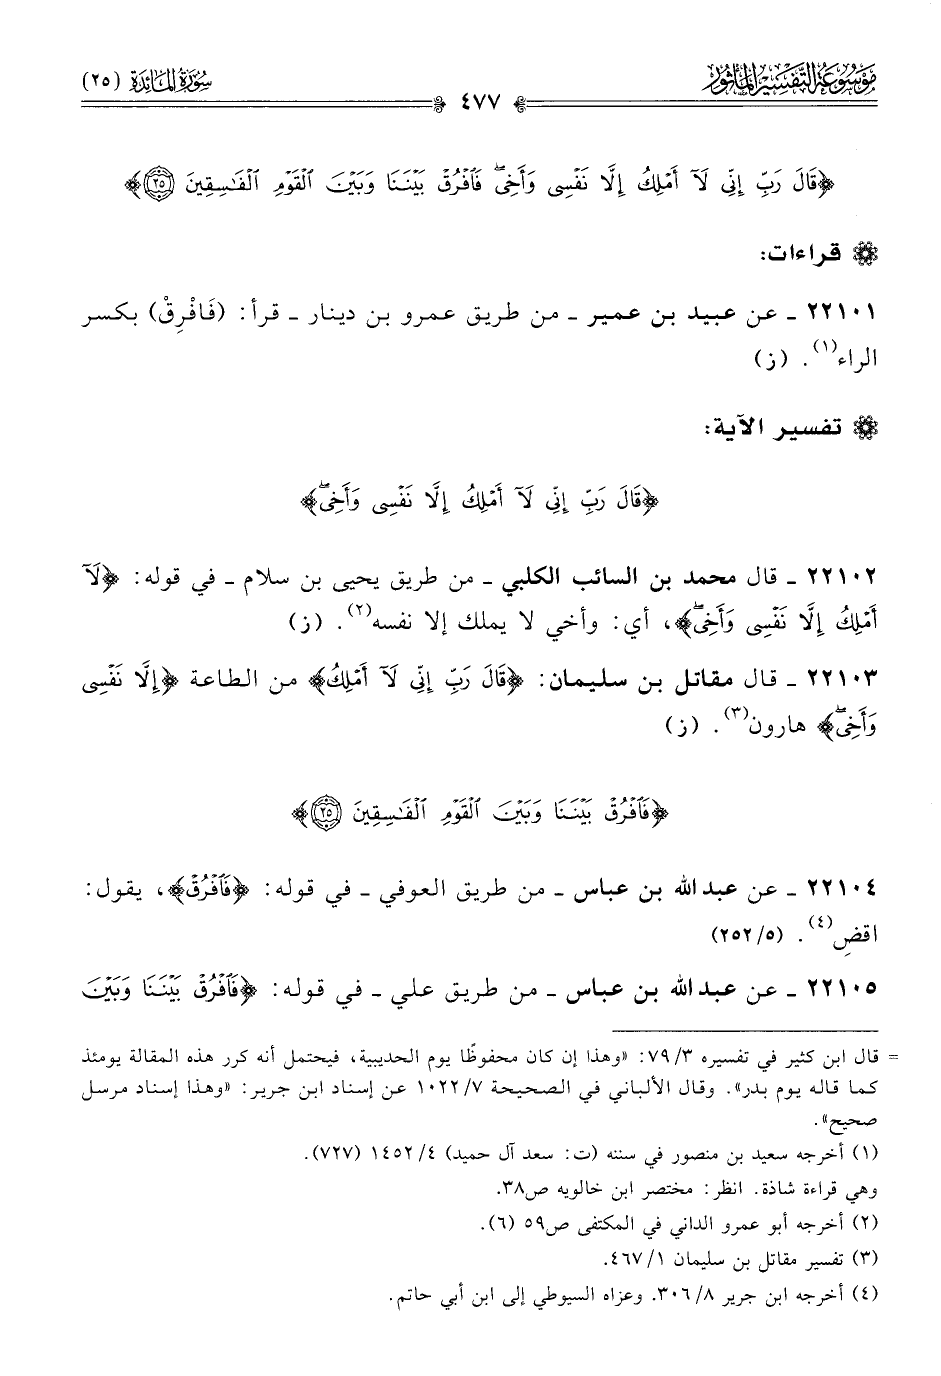 موسوعة التفسير المأثور
سورة المائدة (٢٥)
٤٧٧
﴿قَالَ رَبِّ إِنِّي لَآ أَمۡلِكُ إِلَّا نَفۡسِي وَأَخِيۖ فَٱفۡرُقۡ بَيۡنَنَا وَبَيۡنَ ٱلۡقَوۡمِ ٱلۡفَٰسِقِينَ ٢٥﴾
قراءات:
٢٢١٠١ ـ عن عبيد بن عمير ـ من طريق عمرو بن دينار ـ قرأ: (فَافْرِقْ) بكسر
الراء(١). (ز)
تفسير الآية:
﴿قَالَ رَبِّ إِنِّي لَآ أَمۡلِكُ إِلَّا نَفۡسِي وَأَخِيۖ﴾
٢٢١٠٢ ـ قال محمد بن السائب الكلبي ـ من طريق يحيى بن سلام ـ في قوله: ﴿لَآ
أَمۡلِكُ إِلَّا نَفۡسِي وَأَخِيۖ﴾، أي: وأخي لا يملك إلا نفسه(٢). (ز)
٢٢١٠٣ ـ قال مقاتل بن سليمان: ﴿قَالَ رَبِّ إِنِّي لَآ أَمۡلِكُ﴾ من الطاعة ﴿إِلَّا نَفۡسِي
وَأَخِيۖ﴾ هارون(٣). (ز)
﴿فَٱفۡرُقۡ بَيۡنَنَا وَبَيۡنَ ٱلۡقَوۡمِ ٱلۡفَٰسِقِينَ ٢٥﴾
٢٢١٠٤ ـ عن عبد الله بن عباس ـ من طريق العوفي ـ في قوله: ﴿فَٱفۡرُقۡ﴾، يقول:
اقضِ(٤). (٢٥٢/٥)
٢٢١٠٥ ـ عن عبد الله بن عباس ـ من طريق علي ـ في قوله: ﴿فَٱفۡرُقۡ بَيۡنَنَا وَبَيۡنَ
= قال ابن كثير في تفسيره ٧٩/٣: «وهذا إن كان محفوظًا يوم الحديبية، فيحتمل أنه كرر هذه المقالة يومئذ
كما قاله يوم بدر». وقال الألباني في الصحيحة ١٠٢٢/٧ عن إسناد ابن جرير: «وهذا إسناد مرسل
صحيح».
(١) أخرجه سعيد بن منصور في سننه (ت: سعد آل حميد) ١٤٥٢/٤ (٧٢٧).
وهي قراءة شاذة. انظر: مختصر ابن خالويه ص٣٨.
(٢) أخرجه أبو عمرو الداني في المكتفى ص٥٩ (٦).
(٣) تفسير مقاتل بن سليمان ٤٦٧/١.
(٤) أخرجه ابن جرير ٣٠٦/٨. وعزاه السيوطي إلى ابن أبي حاتم.